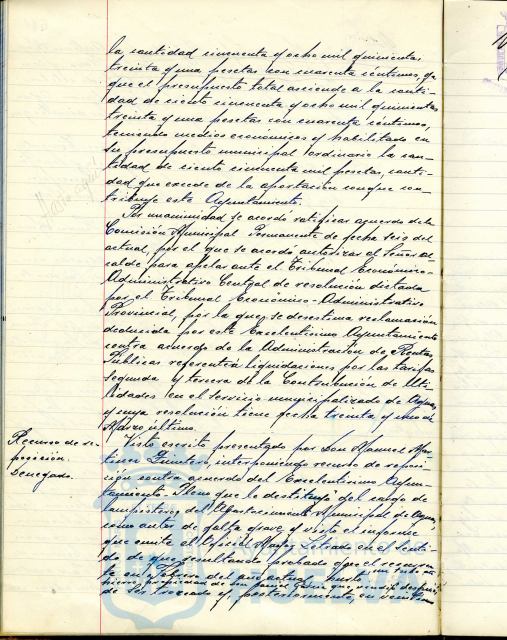 la cantidad cincuenta y ocho mil quinientas
treinta y una pesetas con cuarenta céntimos, ya
que el presupuesto total asciende a la canti-
dad de ciento cincuenta y ocho mil quinientas
treinta y una pesetas con cuarenta céntimos,
teniendo medios económicos y habilitado en
su presupuesto municipal ordinario la can-
tidad de ciento cincuenta mil pesetas, canti-
dad que excede de la aportación con que con-
tribuye este Ayuntamiento.
Por unanimidad se acordó ratificar acuerdo de la
Comisión Municipal Permanente de fecha seis del
actual, por el que se acordó autorizar al Señor Al-
calde para apelar ante el Tribunal Económico-
Administrativo Central de resolución dictada
por el Tribunal Económico-Administrativo
Provincial, por la que se desestima reclamación
deducida por este Excelentísimo Ayuntamiento
contra acuerdo de la Administración de Rentas
Públicas referente a liquidaciones por las tarifas
segunda y tercera de la Contribución de Uti-
lidades en el Servicio municipalizado de Aguas,
y cuya resolución tiene fecha treinta y uno de
Marzo último.
Recurso de re-
posición.
Denegado.
Visto escrito presentado por Don Manuel Mar-
tínez interponiendo recurso de reposi-
ción contra acuerdo del Excelentísimo Ayun-
tamiento Pleno que le destituyó del cargo de
lampistero del Abastecimiento Municipal de Aguas,
como autor de falta grave y visto el informe
que emite el Oficial Mayor Letrado en el senti-
do de que resultando probado que el recurren-
te en del actual hurtó un tubo de
hierro, propiedad de que vendió después
de ser troceado y, posteriormente, en